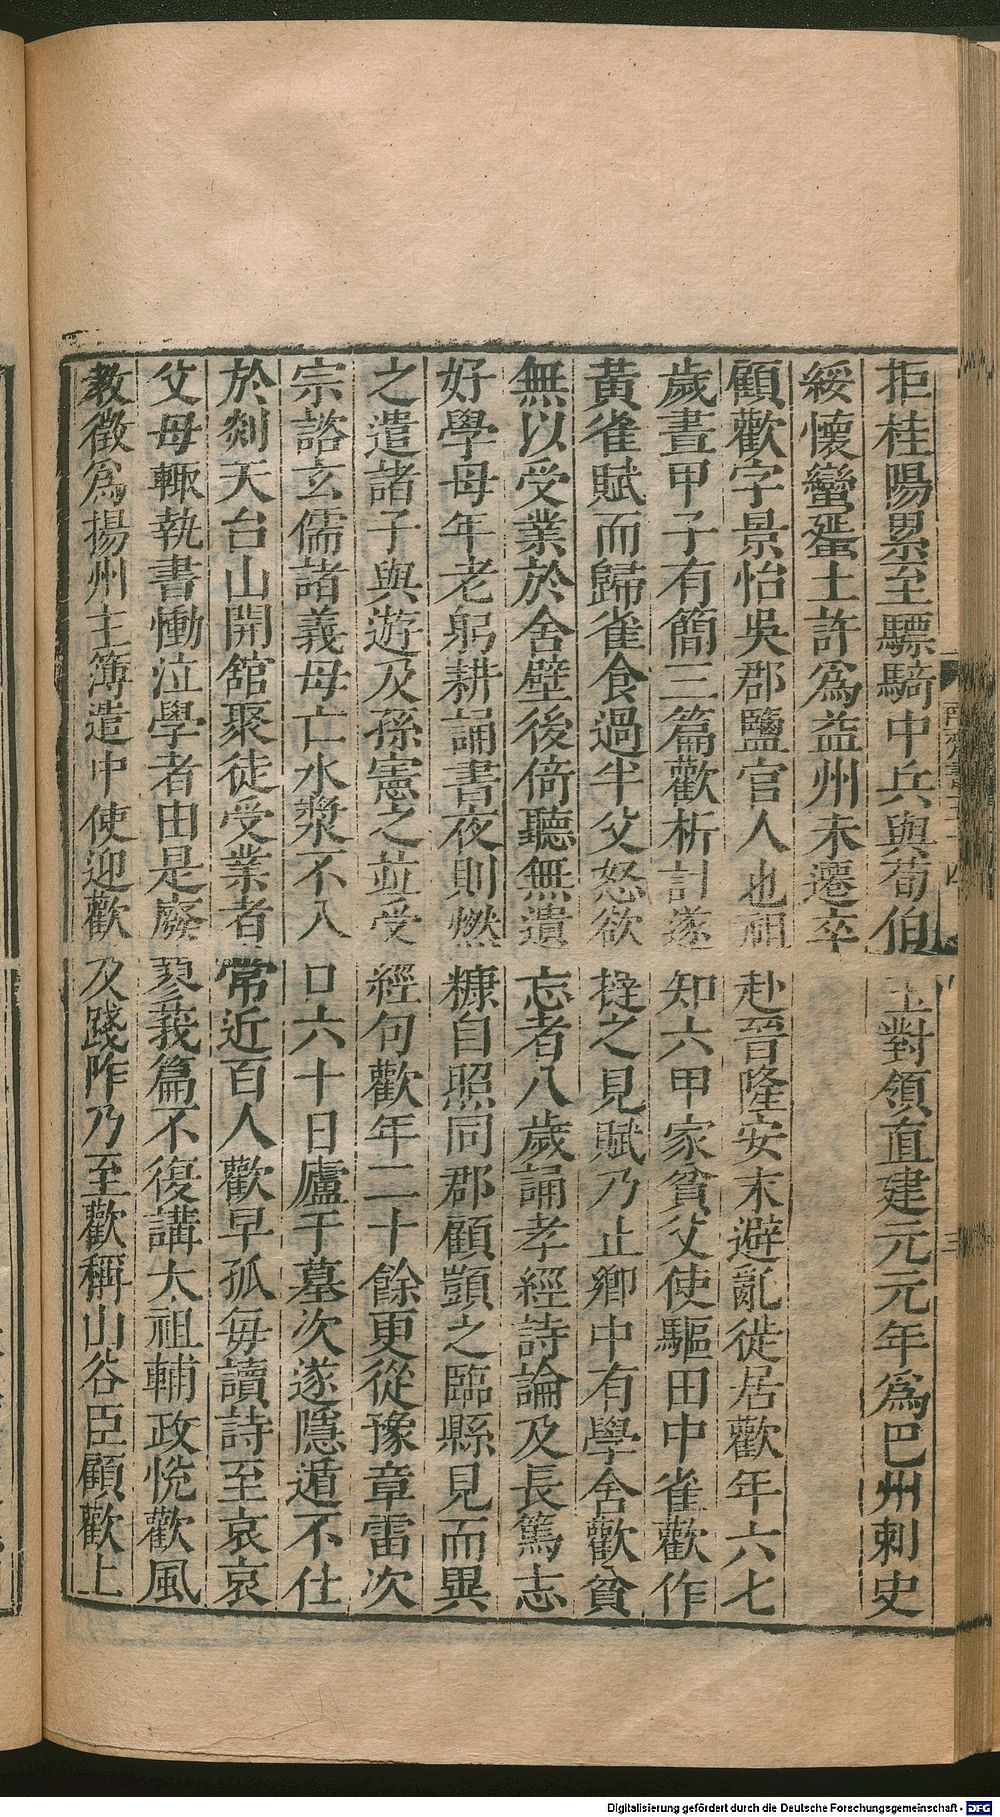 拒桂陽累至驃騎中兵與荀伯玉對領直建元元年爲巴州刺史
綏懷蠻蜑土許爲益州未遷卒
顧歡字景怡吳郡鹽官人也祖赴晉隆安末避亂徙居歡年六七
歲畫甲子有簡三篇歡析計遂知六甲家貧父使驅田中雀歡作
黃雀賦而歸雀食過半父怒欲撻之見賦乃止鄕中有學舍歡貧
無以受業於舍壁後倚聽無遺忘者八歲誦孝經詩論及長篤志
好學母年老躬耕誦書夜則燃糠自照同郡顧顗之臨縣見而異
之遣諸子與遊及孫憲之竝受經句歡年二十餘更從豫章雷次
宗諮玄儒諸義母亡水漿不入口六十日廬于墓次遂隱遁不仕
於剡天台山開館聚徒受業者常近百人歡早孤每讀詩至哀哀
父母輙執書慟泣學者由是廢蓼莪篇不復講太祖輔政悅歡風
敎徵爲揚州主簿遣中使迎歡及踐阼乃至歡稱山谷臣顧歡上
Digitalisierung gefördert durch die Deutsche Forschungsgemeinschaft - DFG